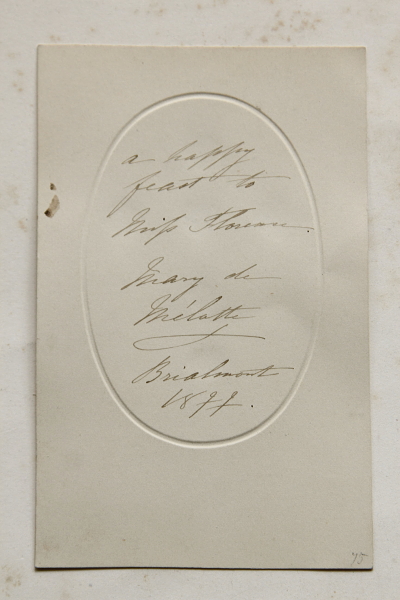 a happy
feast to
Miss Florence.
Mary de
Mélotte
Brialmont
1877.
75